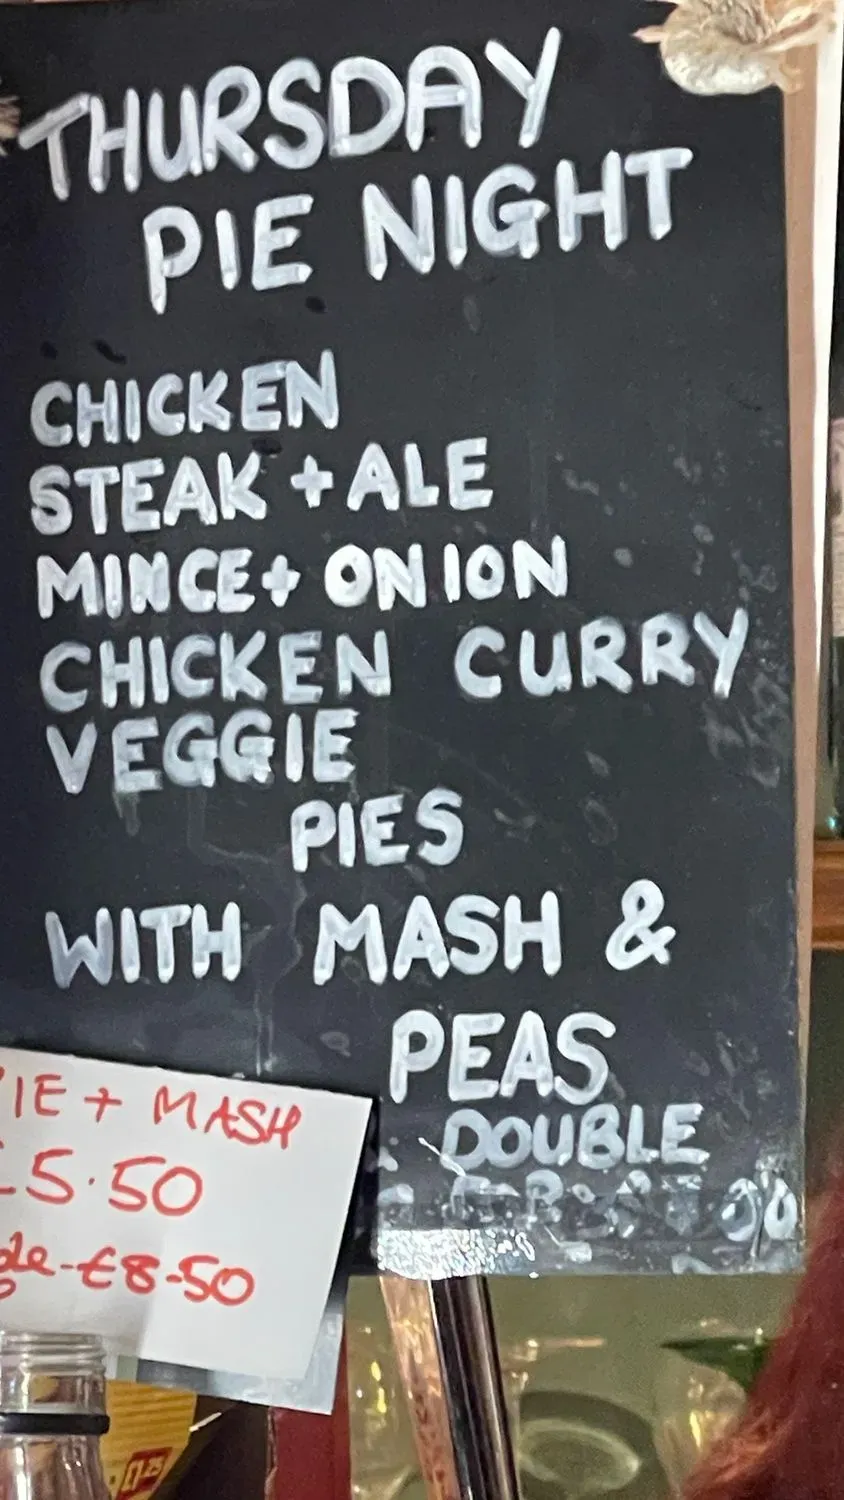 THURSDAY
PIE NIGHT
CHICKEN
STEAK + ALE
MINCE + ONION
CHICKEN CURRY
VEGGIE
PIES
WITH MASH &
PEAS
DOUBLE
IE + MASH
£5.50
ble - £8.50